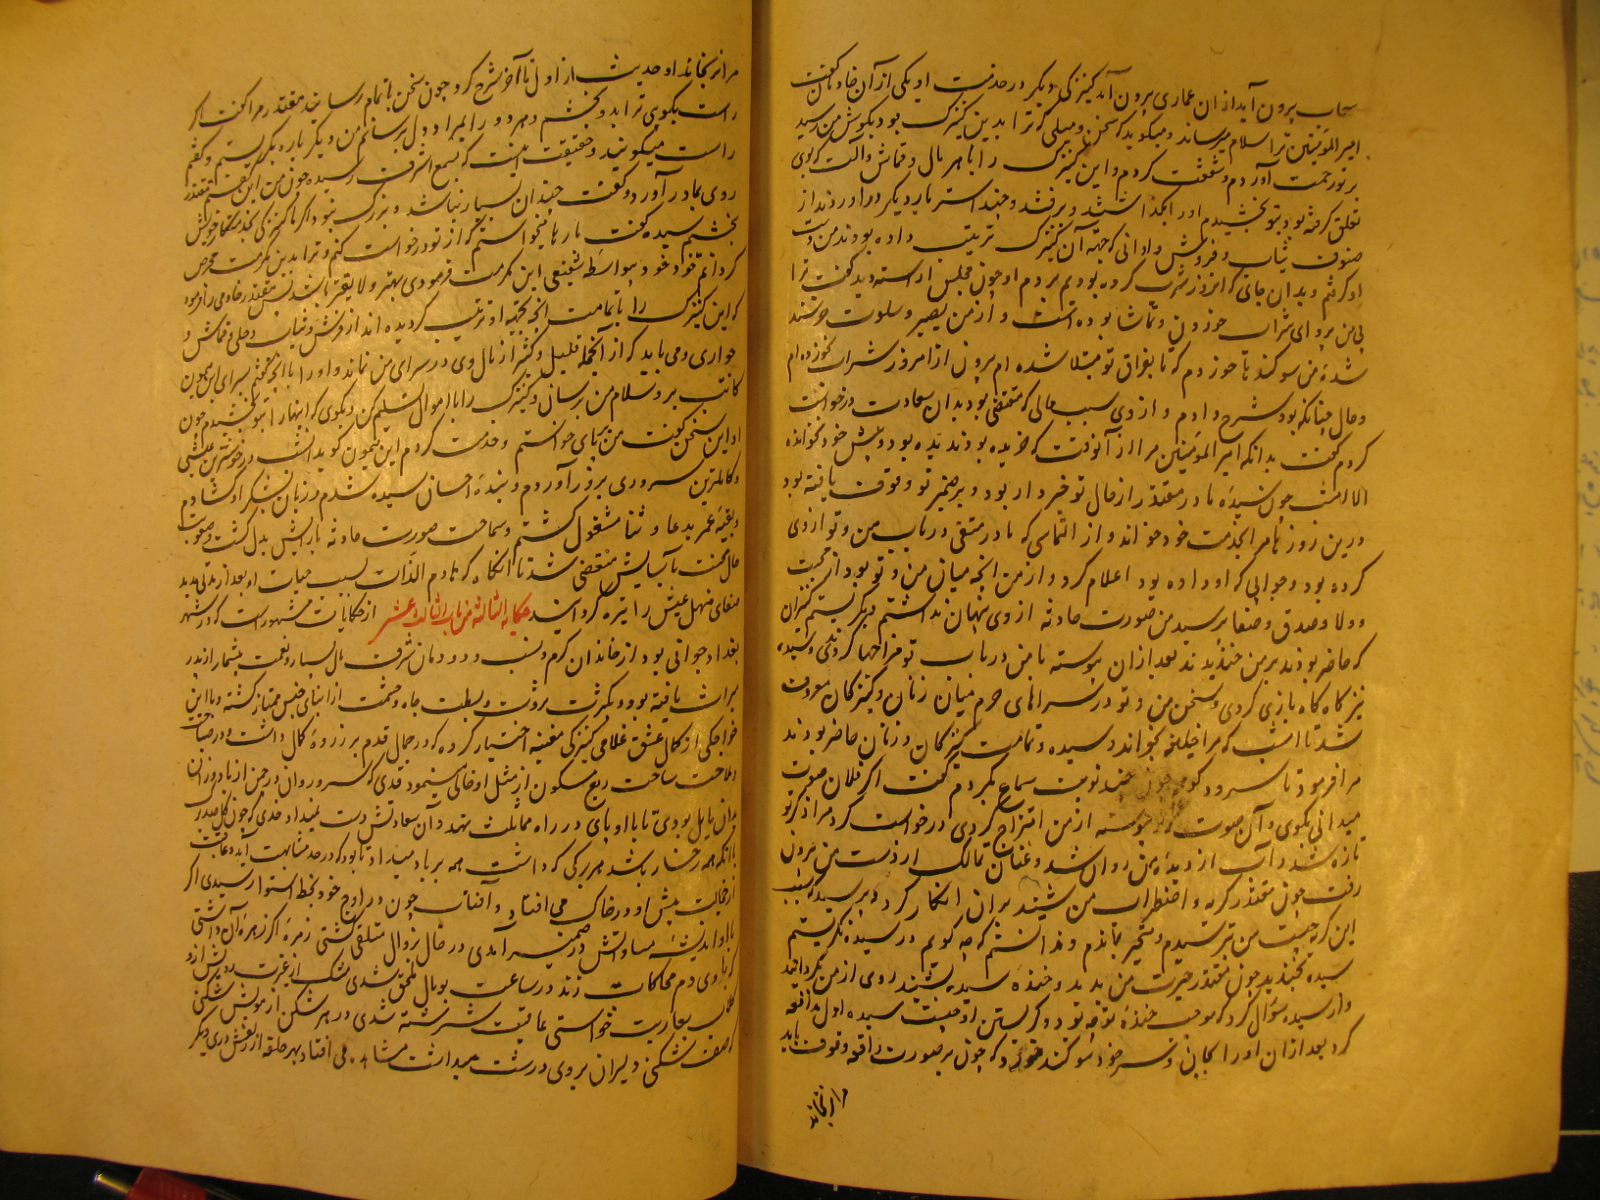 سحاب بیرون آید از آن عماری بیرون آمد کنیزکی دیگر در خدمت او یکی از آن خادمان گفت
امیر المؤمنین ترا سلام میرساند و میگوید که سخن و میلی که ترا بدین کنیزک بود بگوش من رسید
بر تو رحمت آوردم و شفقت کردم و این کنیزک را با هر مال و قماش و آلت که بوی
تعلق گرفته بود بتو بخشیدم او را بگذاشتند و برفتند و چند استر بار دیگر در آوردند از
صنوف ثیاب و فروش و اوانی که جهة آن کنیزک ترتیب داده بودند من دست
او گرفتم و بدان جای که از فرز شرب کرده بودیم بردم او چون مجلس آراسته دید گفت ترا
بی من پروای شراب خوردن و تماشا بوده است و از من بصیر و سلوت خرسند
شدهٔ من سوگند یاد خوردم که تا بفراق تو مبتلا شده ام بیرون از امروز شراب نخورده ام
و حال چنانکه بود شرح دادم و از وی سبب حالی که مقتضی بود بدان سعادت درخواست
کردم گفت بدانکه امیر المؤمنین مرا از آنوقت که خریده بودند ندیده بود و پیش خود نخوانده
الا امشب چون سیده مادر مقتدر از حال تو خبردار بود و بر ضمیر تو وقوف یافته بود
درین روز نام بخدمت خود خواند و از التماسی که مادر متقی در باب من و تو از وی
کرده بود و جوابی که او داده بود اعلام کرد و از من آنچه میان من و تو بود از محبت
و ولا و صدق و صفا پرسید من صورت حادثه از وی پنهان نداشتم و بگریستم کنیزکان
که حاضر بودند بر من خندیدند بعد از آن پیوسته با من در باب تو مزاحها کردی و سیده
نیز گاه گاه بازی کردی و سخن من و تو در سراهای حرم میان زنان و کنیزکان معروف
شد تا امشب که مرا خلیفه بخواند و سیده و تمامت کنیزکان و زنان حاضر بودند
مرا فرمود تا سرود گویم چون چند نوبت سماع بکردم گفت اگر فلان صوت
میدانی بگوی و آن صوت بود که پیوسته از من اقتراح کردی درخواست کرد مرا ذکر تو
تازه شد و آب از دیده من روان شد و عنان تمالک از دست من بیرون
رفت چون مقتدر گریه و اضطراب من بشنید بر آن انکار کرد و پرسید که سبب
این گریه چیست من بترسیدم و متحیر بماندم و ندانستم که چه گویم در سیده نگریستم
سیده بخندید چون مقتدر حیرت من بدید و خندهٔ سیده بشنید روی از من بگردانید
و از سیده سؤال کرد که موجب خندهٔ تو چه بود و گریستن او چیست سیده اول مدافعه
کرد بعد از آن او را بجان و سر خود سوگند داد که چون بر صورت واقعه وقوف یابد
مرا نرنجاند
مرا نرنجاند او حدیث از اول تا آخر شرح کرد چون سخن باتمام رسانید مقتدر مرا گفت اگر
راست بگوی ترا بدو بخشم و هر دو را بمراد دل برسانم من دیگر بار دیگر بگریستم و گفتم
راست میگویند و حقیقت اینست که بسمع اشرف رسیده چون من این بگفتم مقتدر
روی بمادر آورد و گفت چندان بسیار نباشد و بزرگ نبود اگر ما کنیزکی بخدمتکار خویش
بخشیم سیده گفت بارها میخواستم که از تو درخواست کنم و ترا بدین مکرمت محرض
گردانم خود بی واسطه شفیعی این مکرمت فرمودی بهتر و لایقتر باشد پس مقتدر خادمی را فرمود
که این کنیزک را با تمامت آنچه بجهة او ترتیب کرده اند از فروش و ثیاب و حلی و قماش و
جواری و می باید که از آنجمله قلیل و کثیر از مال وی در سرای من نماند و او را با آنچه گفتم بسرای ابن میمون
کاتب بر و سلام من برسان و کنیزک را با اموال تسلیم کن و بگوی که اینها را بتو بخشیدم چون
او این سخن گفت من بپای خواستم و خدمت کردم ابن میمون گوید آن شب در خوشترین عیشی
و کاملترین سروری بروز آوردم و بندهٔ احسان سیده شدم و زبان بشکر او گشادم
و بقیه عمر بدعا و ثنا مشغول گشتم و سماحت صورت حادثه بارایش بدل گشت و صعوبت
حال محنت بآسایش منقضی شد تا آنگاه که هادم اللذات بسبب حیات او بعد از مدتی مدید
صفای منهل عیش را تیره گردانید حکایة الثالثه من باب الثالث عشر از حکایات مشهور است که در شهر
بغداد جوانی بود از خاندان کرم و نسب و دودمان شرف مال بسیار و نعمت بیشمار از پدر
میراث یافته بود و بکثرت ثروت و بسطت جاه و حشمت از ابنای جنس ممتاز گشته و با این
خواجگی از کمال عشق غلامی کنیزکی مغنیه اختیار کرده که در جمال قدم بر ذروهٔ کمال داشت و در صباحت
و ملاحت ساحت ربع مسکون از مثل او خالی مینمود قدی که سرو روان در چمن از باد وزان
بدان مایل بودی تا با او پای در راه مماثلت بنهد و آن سعادتش دست نمیداد خدی که چون گل صدبرگ
با آنکه همه رخسار باشد هر برگی که داشت همه بر باد میداد تا بو که در حد مشابهت آید و عاقبت
از خجالت پیش او در خاک می افتاد و آفتاب چون در اوج خود بخط استوا رسیدی اگر
با او اندیشهٔ مساواتش در ضمیر آمدی در حال بزوال متلقی گشتی زهره اگر زهرهٔ آن داشتی
که با وی دم محاکات زند در ساعت بوبال ملحق شدی مشک از غیرت
بعاریت خواستی عاقبت سرشته شدی و در هر شکن از مویش شکنی
که صف شکنی دلیران بروی درست میداشت مشاهده می افتاد بهر حلقه از زلفش دری دیگر